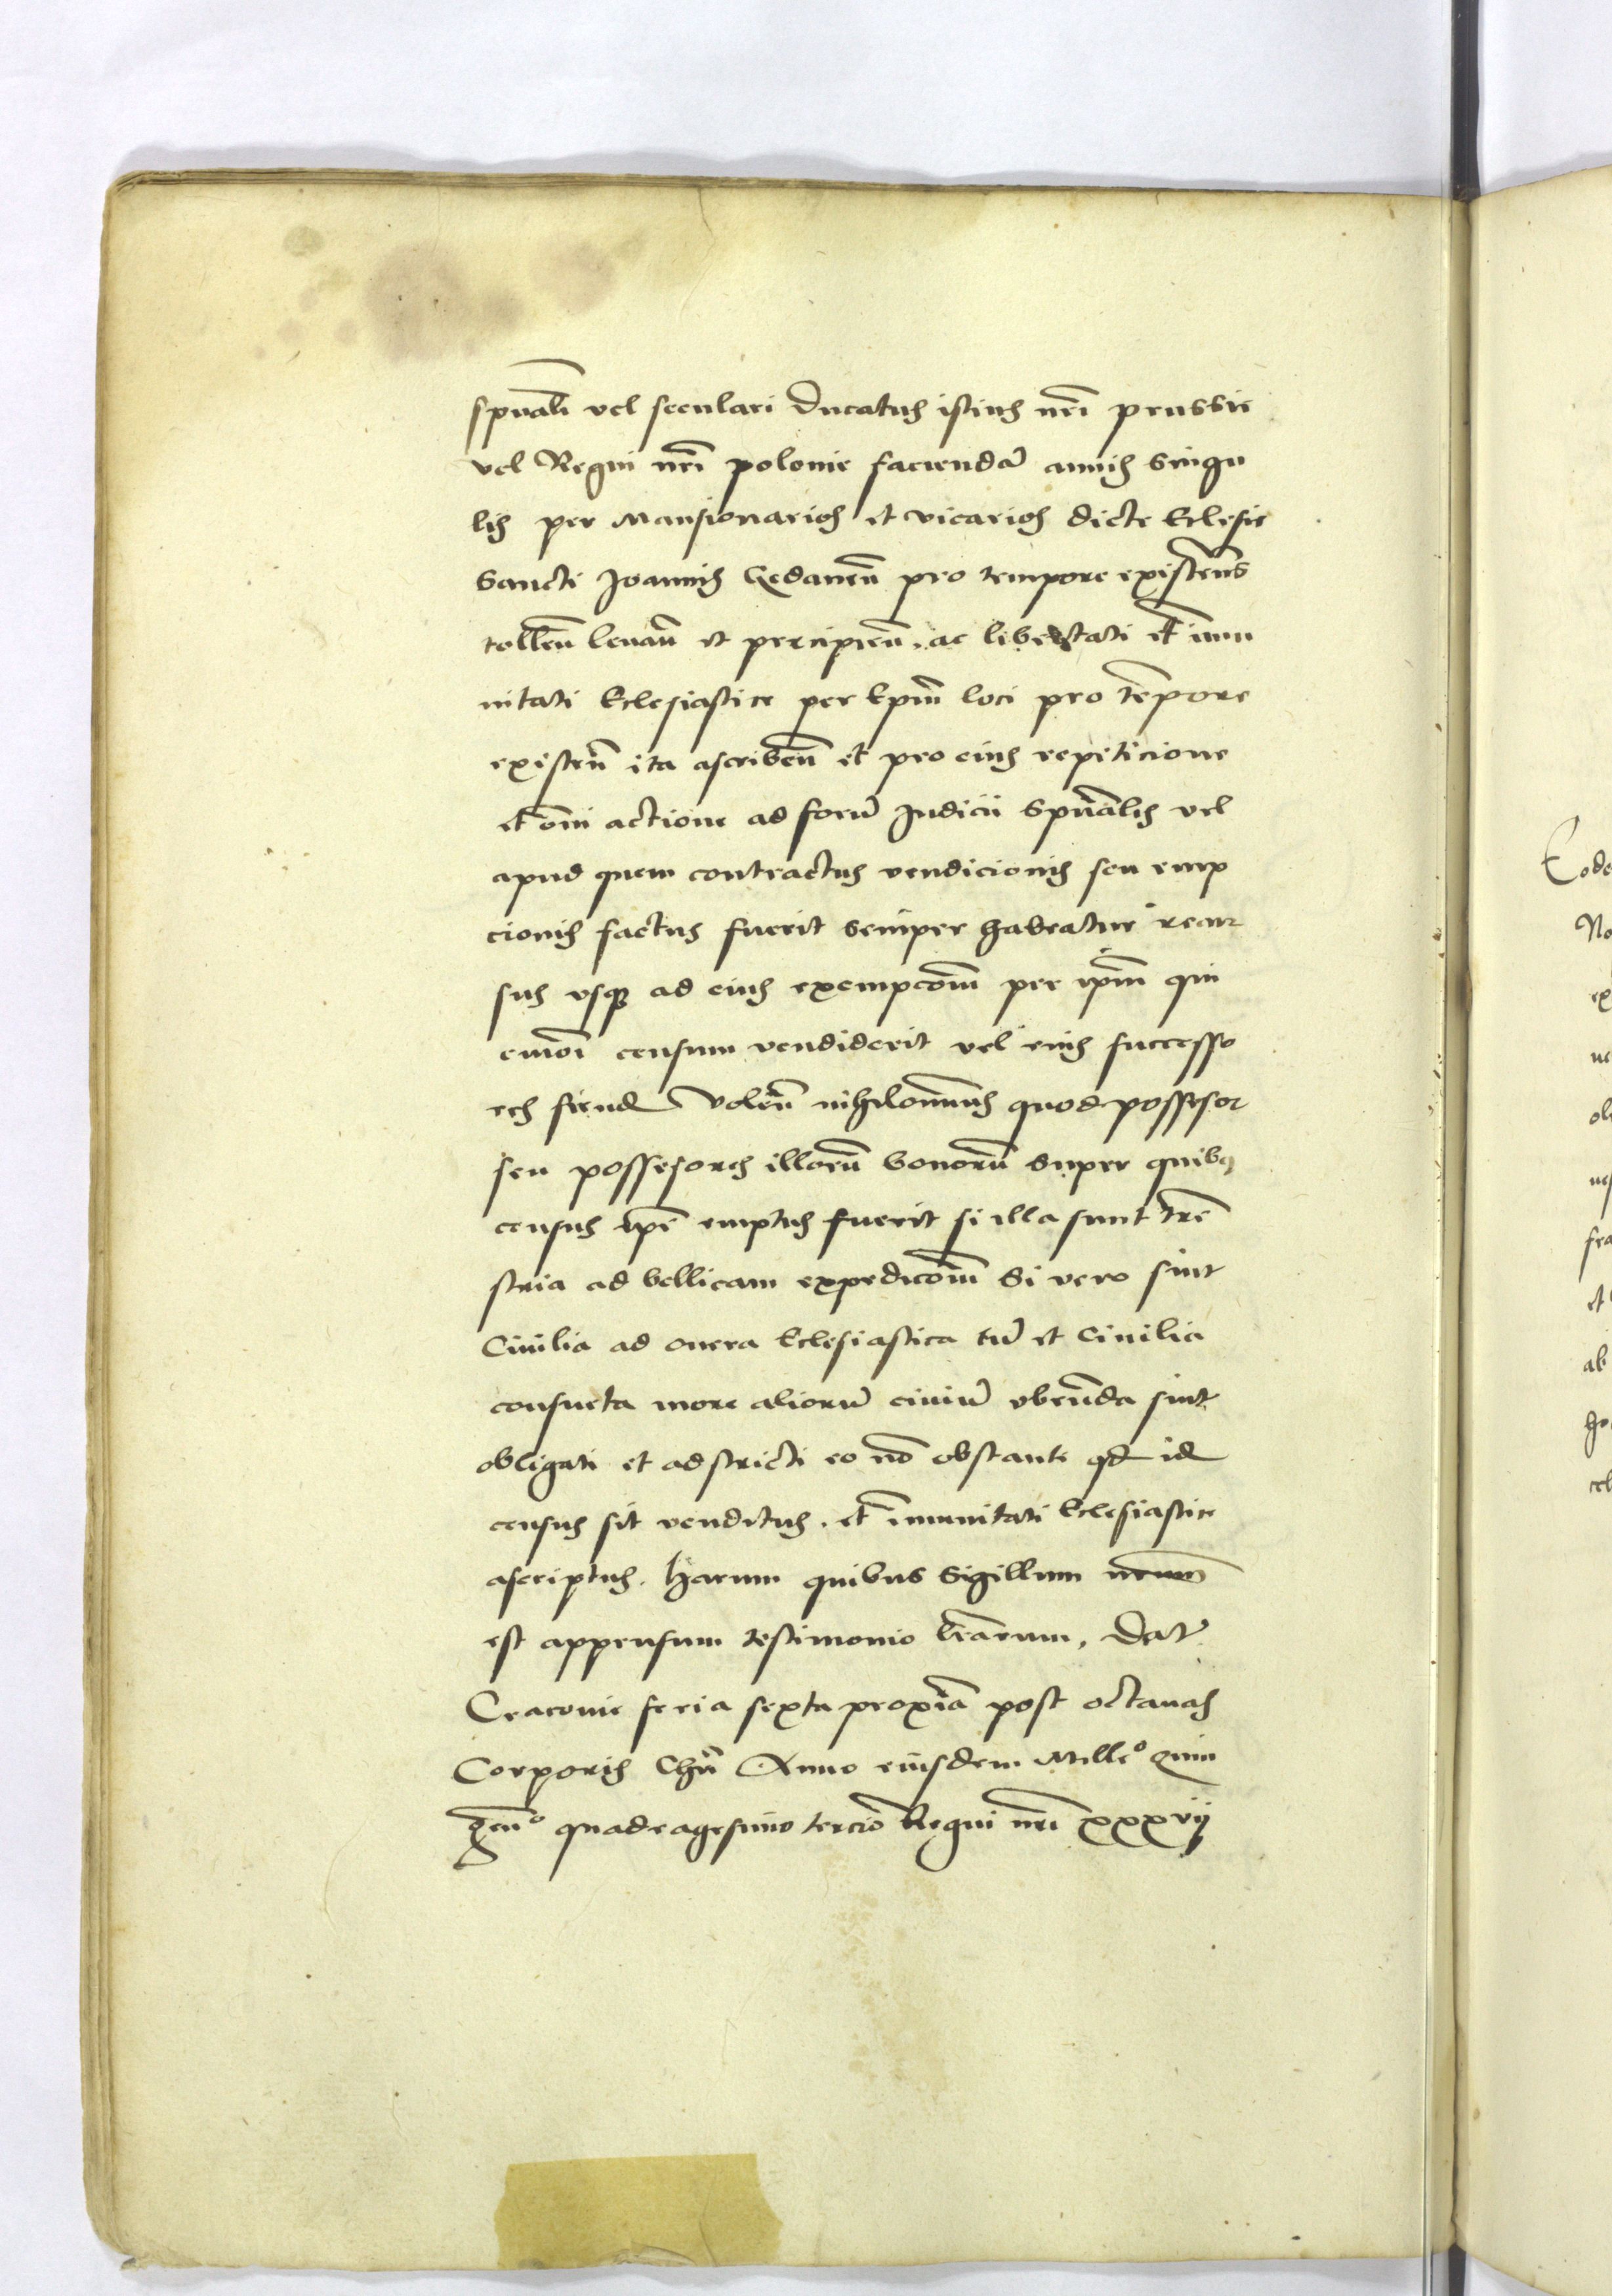 spũali vel seculari Ducatus istius nr̃i prussie
vel Regni nr̃i polonie faciendã annis singu
lis per Mansionarios et vicarios dicte Eclesie
Sancti Joannis Gedaneñ pro tempore existeñs
tolleñ levañ et percipieñ. ac libertati et im̃u
nitati Eclesiastice per Ep̃m loci pro tẽpore
existeñ ita ascribeñ et pro eius repeticione
et õni actione ad forũ Judicii Spũalis vel
apud quem contractus vendicionis seu emp
cionis factus fuerit semper habeatur recur
sus vsq3 ad eius exempcõm per ip̃m qui
em̃oi censum vendiderit vel eius successo
res fiend Voleñ nihilom̃nus quod possesor
seu possesores illorũ bonorũ super quib9
census ip̃e emptus fuerit si illa sunt tr̃e
stria ad bellicam expedicõm Si vero sint
Civilia ad onera Eclesiastica tũ et Civilia
consueta more aliorũ civiũ vbeũda sint
obligati et adstricti eo nõ obstante qd id
census sit venditus. et im̃unitati Eclesiastice
ascriptus. Harum quibus Sigillum nrum
est appensum testimonio lr̃arum, Dat̃
Cracovie feria sexta proxĩa post octavas
Corporis Chr̃i Anno eiusdem Mill̃eo quin
gen̊ quadragesimo tercio Regni nr̃i xxxvij
Code
No
ex
ne
et
ab